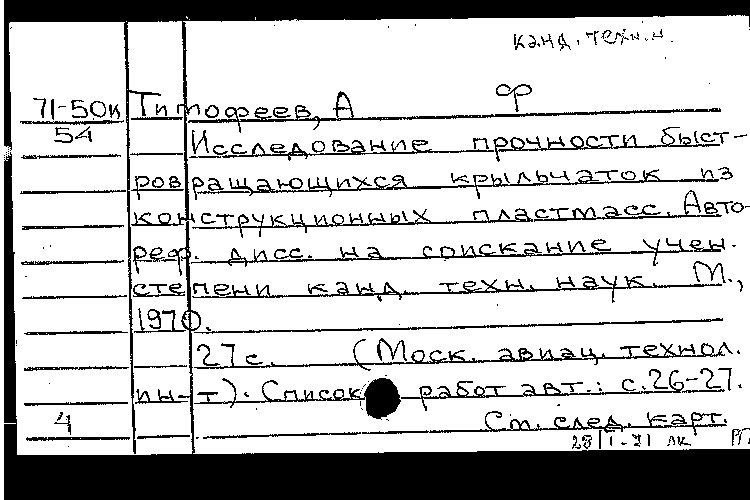 канд. техн.н.
71-50к Тимофеев, А ф
54 Исследование прочности быст-
ровращающихся крыльчаток из
конструкционных пластмасс. Авто-
реф. дисс. на соискание учен.
степени канд. техн. наук. М.,
1970.
27 с. (Моск. авиац. технол.
ин-т). Список работ авт.: с.26-27.
4 См. след. карт.
28/I-71 лк